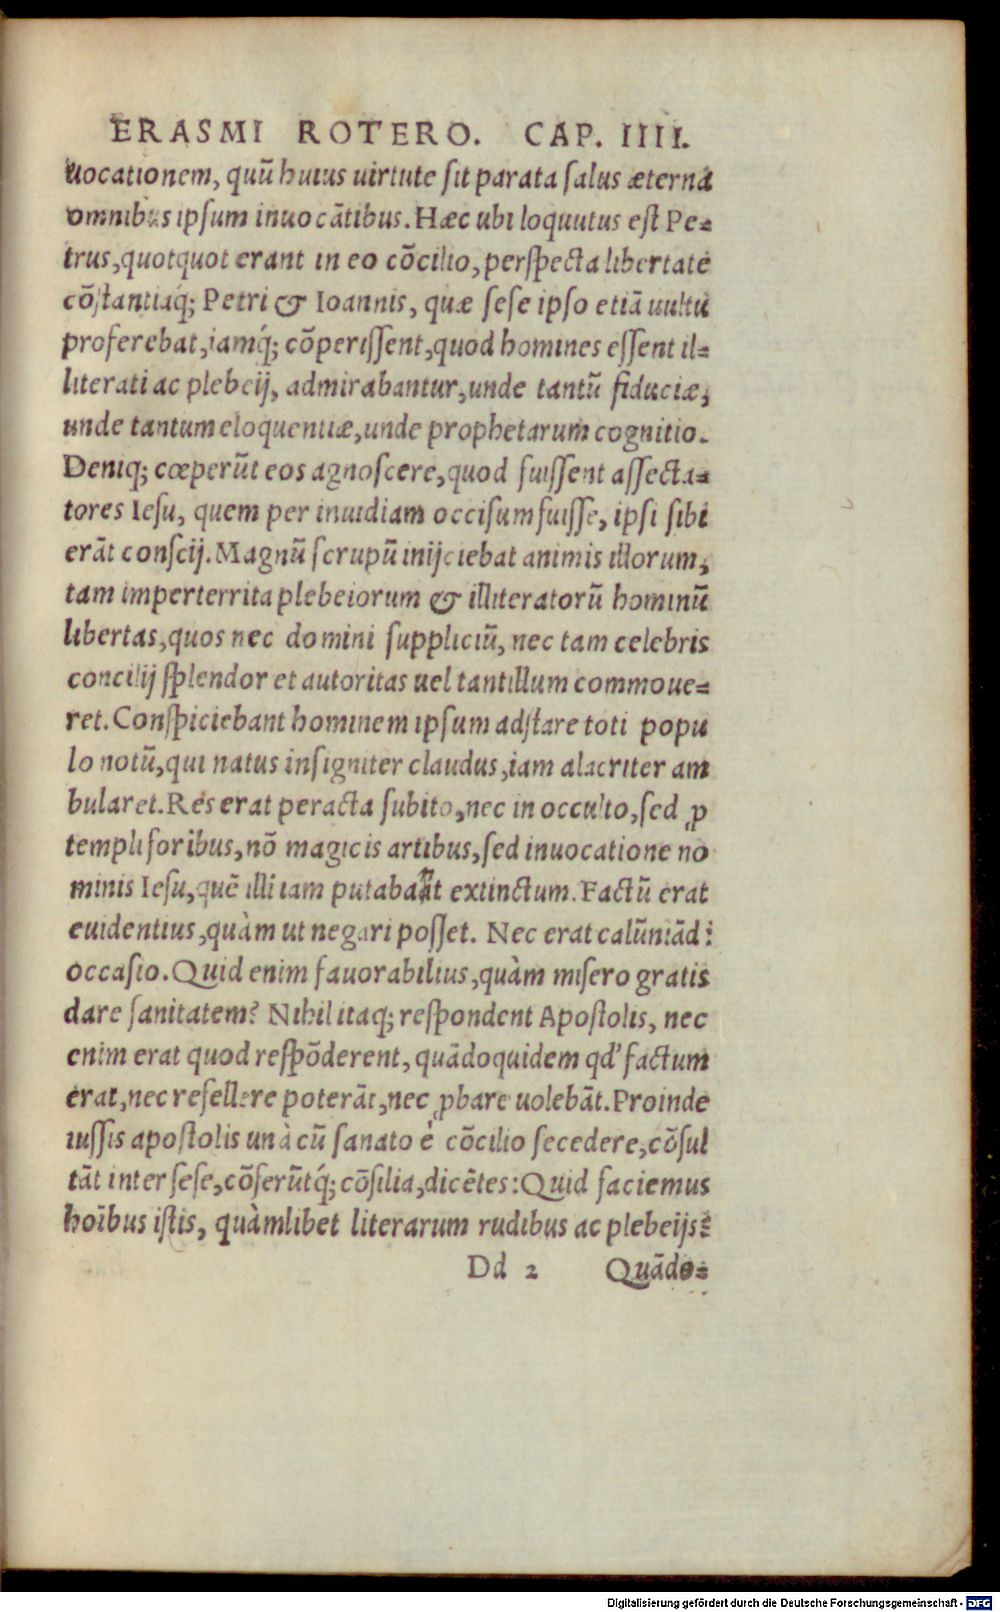 ERASMI ROTERO. CAP. IIII.
uocationem, quũ huius uirtute sit parata salus æterna
omnibus ipsum inuocãtibus. Hæc ubi loquutus est Pe=
trus, quotquot erant in eo cõcilio, perspecta libertate
cõstantiaq́; Petri & Ioannis, quæ sese ipso etiã uultu
proferebat, iamq́; cõperissent, quod homines essent il=
literati ac plebeij, admirabantur, unde tantũ fiduciæ,
unde tantum eloquentiæ, unde prophetarum cognitio.
Deniq; cœperũt eos agnoscere, quod fuissent assecta=
tores Iesu, quem per inuidiam occisum fuisse, ipsi sibi
erãt conscij. Magnũ scrupũ inijciebat animis illorum,
tam imperterrita plebeiorum & illiteratorũ hominũ
libertas, quos nec domini suppliciũ, nec tam celebris
concilij splendor et autoritas uel tantillum commoue=
ret. Conspiciebant hominem ipsum adstare toti popu
lo notũ, qui natus insigniter claudus, iam alacriter am
bularet. Res erat peracta subito, nec in occulto, sed ꝓ
templi foribus, nõ magicis artibus, sed inuocatione no
minis Iesu, quẽ illi iam putabant extinctum. Factũ erat
euidentius, quàm ut negari posset. Nec erat calũniãdi
occasio. Quid enim fauorabilius, quàm misero gratis
dare sanitatem? Nihil itaq; respondent Apostolis, nec
enim erat quod respõderent, quãdoquidem qd' factum
erat, nec refellere poterãt, nec ꝓbare uolebãt. Proinde
iussis apostolis unà cũ sanato è cõcilio secedere, cõsul
tãt inter sese, cõferũtq́; cõsilia, dicẽtes: Quid faciemus
hoĩbus istis, quàmlibet literarum rudibus ac plebeijs?
Dd 2 Quãdo=
Digitalisierung gefördert durch die Deutsche Forschungsgemeinschaft - DFG